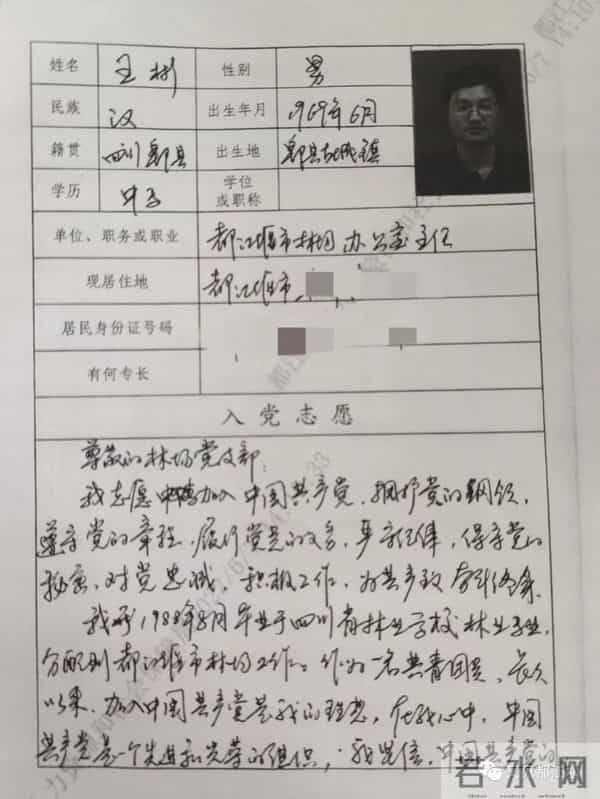 姓名 王彬 性别 男
民族 汉 出生年月 1969年6月
籍贯 四川郫县 出生地 郫县 镇
学历 中专 学位或职称
单位、职务或职业 都江堰市林场 办公室主任
现居住地 都江堰市
居民身份证号码
有何专长
入党志愿
尊敬的林场党支部:
我志愿申请加入中国共产党,拥护党的纲领,
遵守党的章程,履行党员的义务,严守纪律,保守党的
秘密,对党忠诚,积极工作,为共产主义奋斗终身。
我于1988年8月毕业于四川省林业学校林业专业,
分配到都江堰市林场工作。作为一名共青团员,长久
以来,加入中国共产党是我的理想,在我心中,中国
共产党是一个先进和光荣的组织,我坚信,中国共产党的
若水网